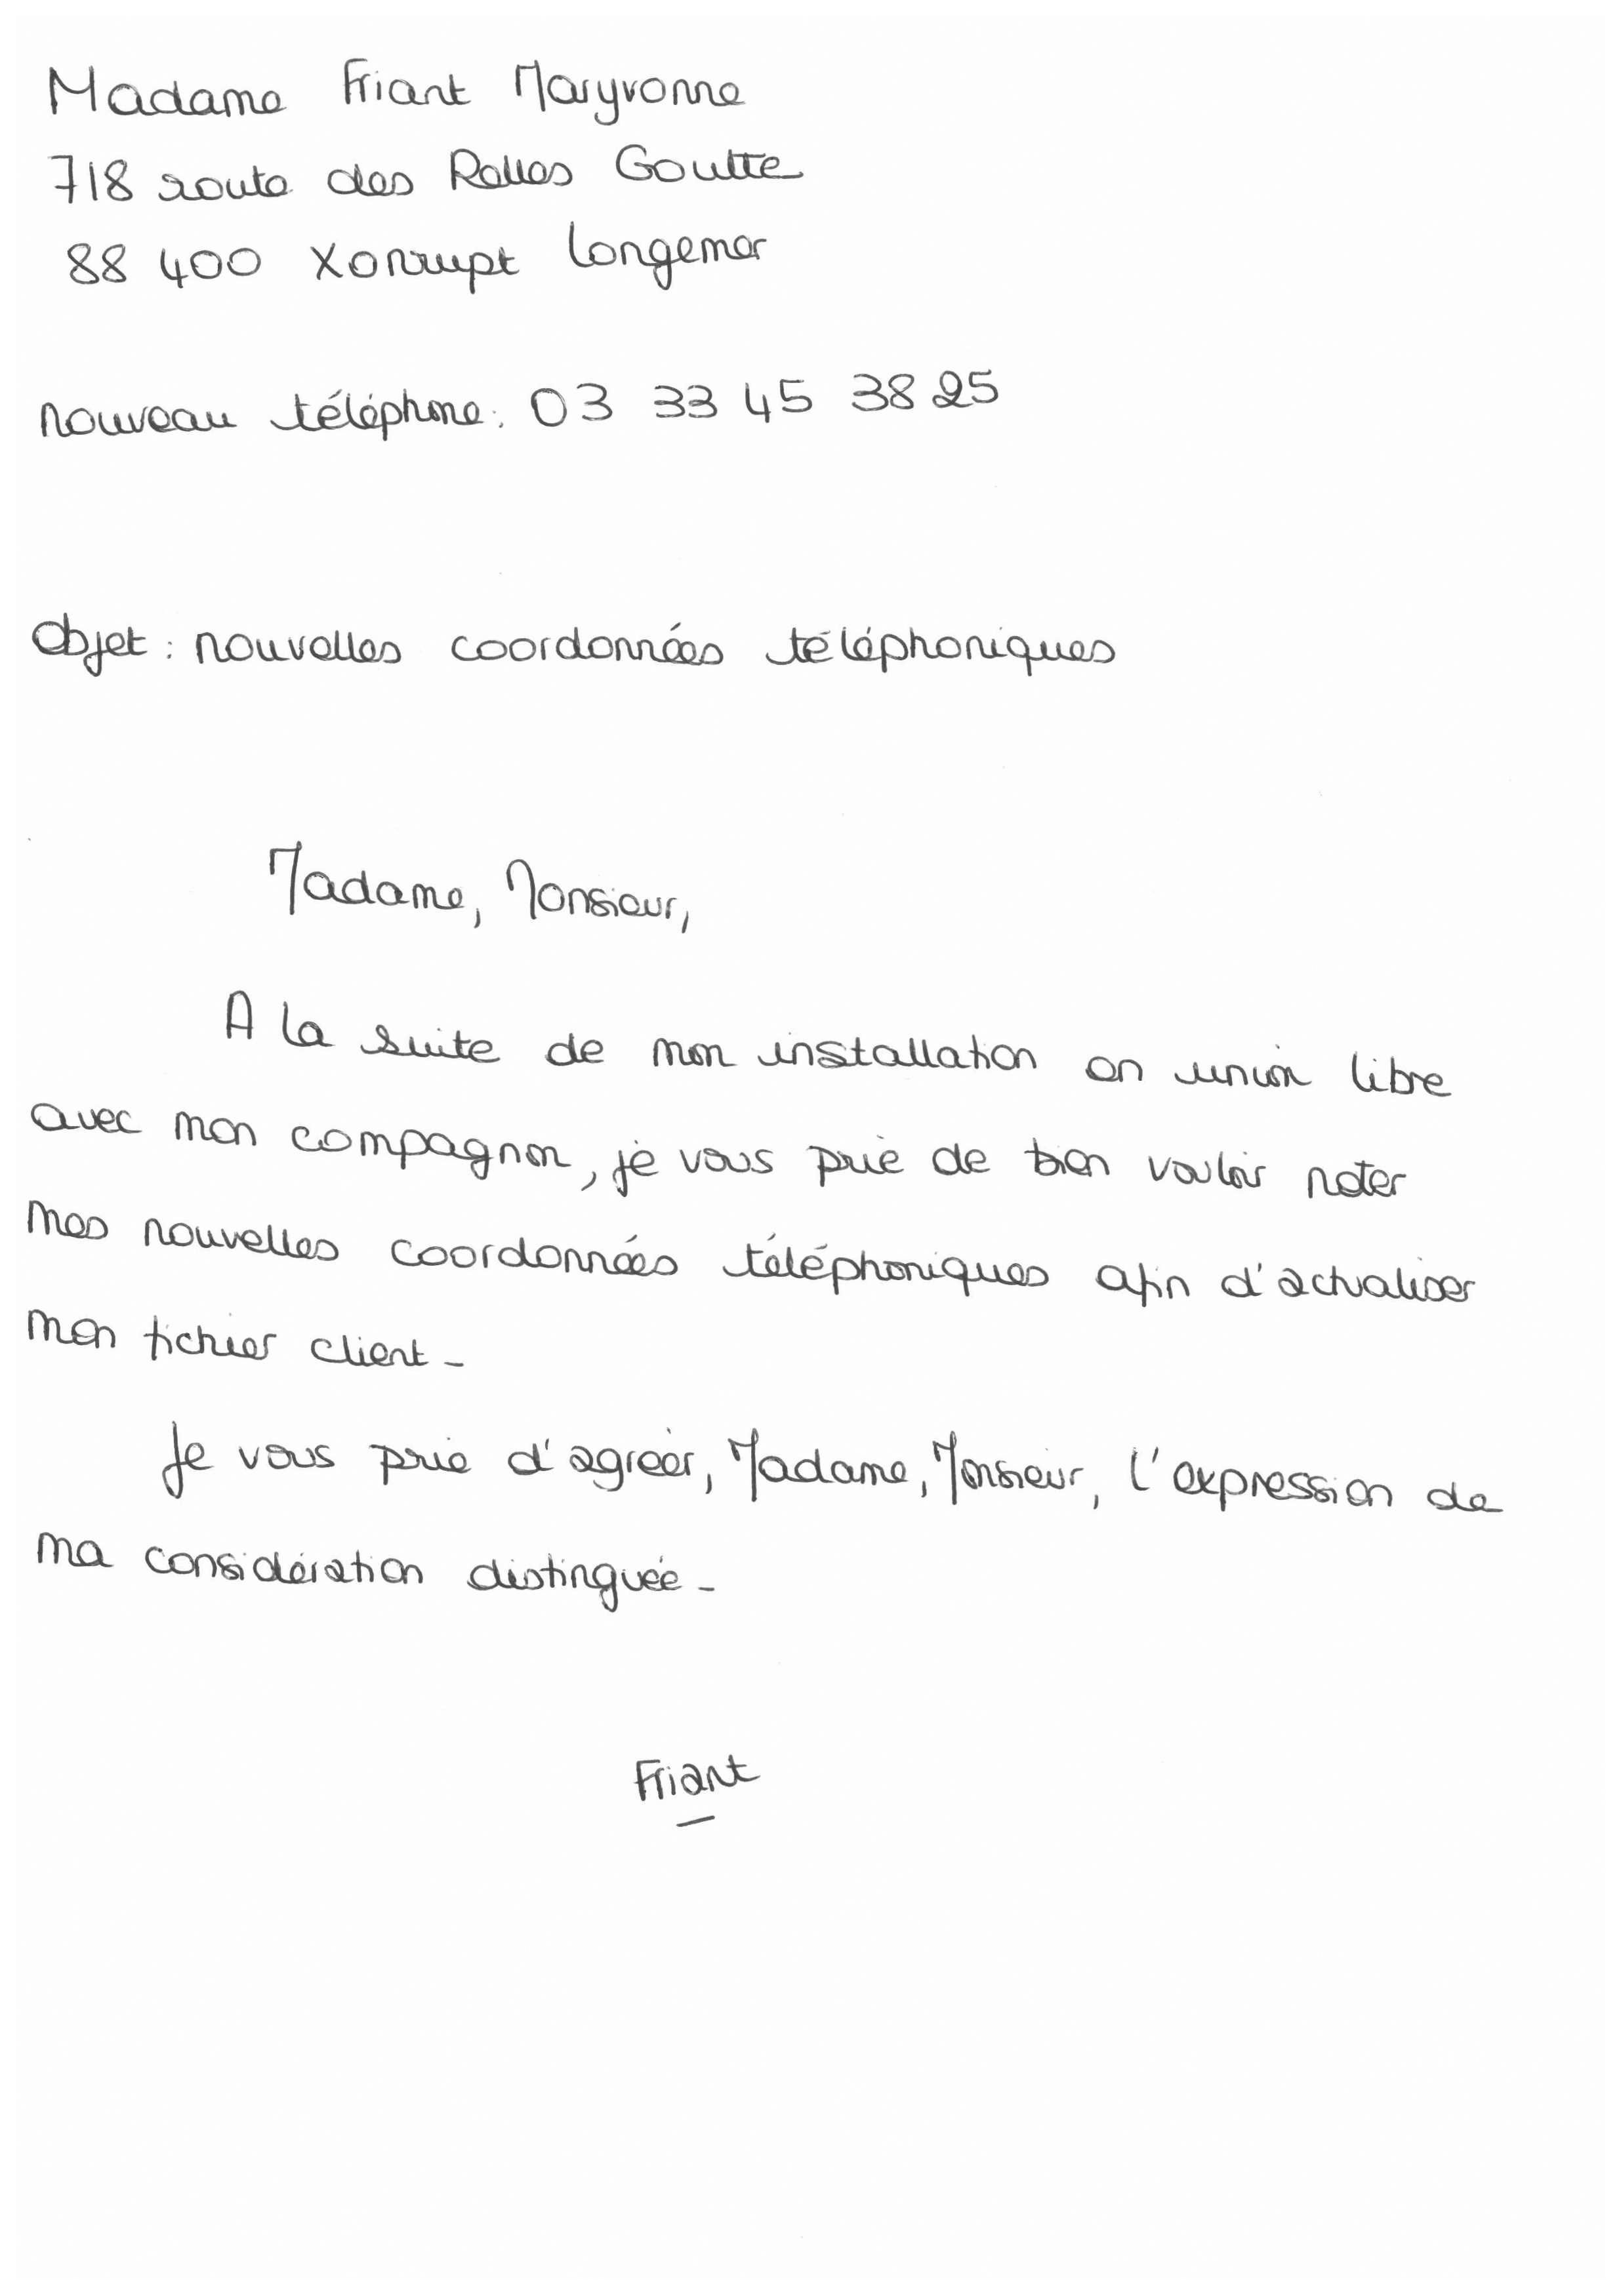 Madame Friant Maryvonne
718 route des Ralles Goutte
88 400 Xonrupt Longemer
nouveau téléphone: 03 33 45 38 25
Objet : nouvelles coordonnées téléphoniques
Madame, Monsieur,
A la suite de mon installation en union libre
avec mon compagnon, je vous prie de bien vouloir noter
mes nouvelles coordonnées téléphoniques afin d'actualiser
mon fichier client_
Je vous prie d'agréer, Madame, Monsieur, l'expression de
ma considération distinguée_
Friant